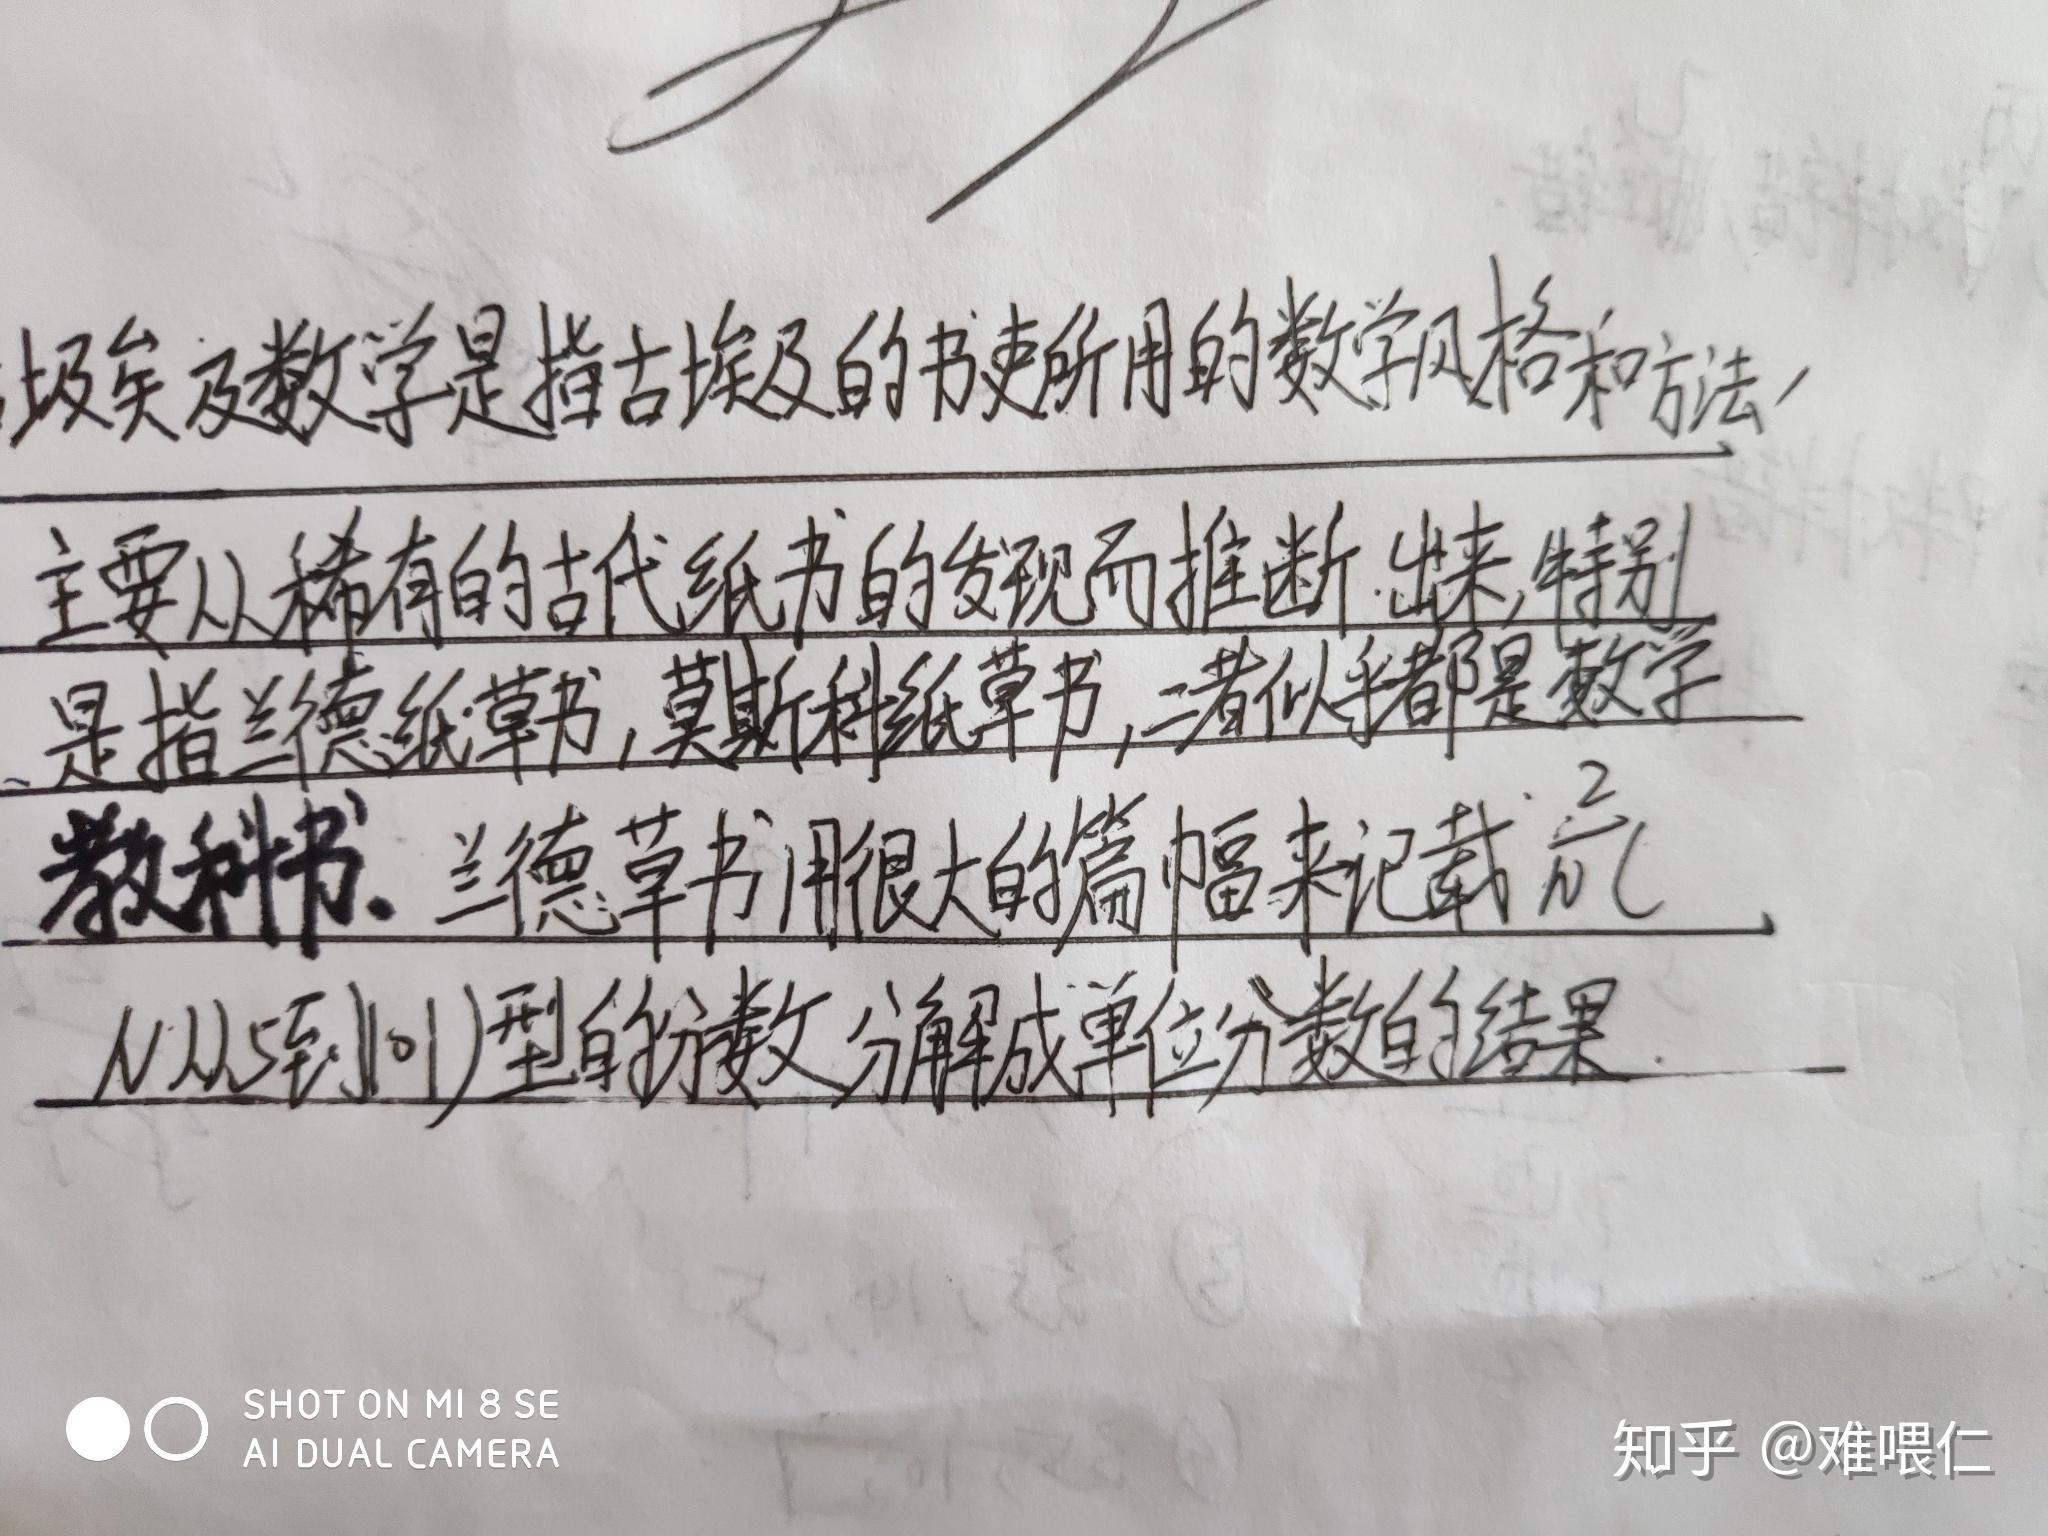 圾埃及数学是指古埃及的书吏所用的数学风格和方法,
主要从稀有的古代纸书的发现而推断出来,特别
是指兰德纸草书,莫斯科纸草书,二者似乎都是数学
教科书.兰德草书用很大的篇幅来记载 2/n (
N从5到101)型的分数分解成单位分数的结果.
SHOT ON MI 8 SE
AI DUAL CAMERA
知乎 @难喂仁